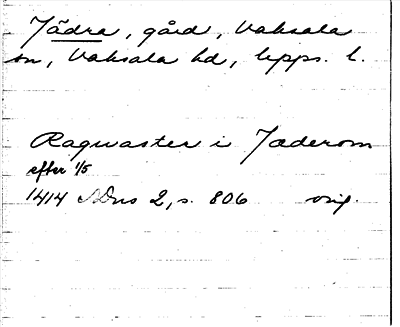 Jädra, gård, Vaksala
sn, Vaksala hd, Upps. l.
Ragwaster i Jaderom
efter 1/5
1414 SDns 2, s. 806 orig.